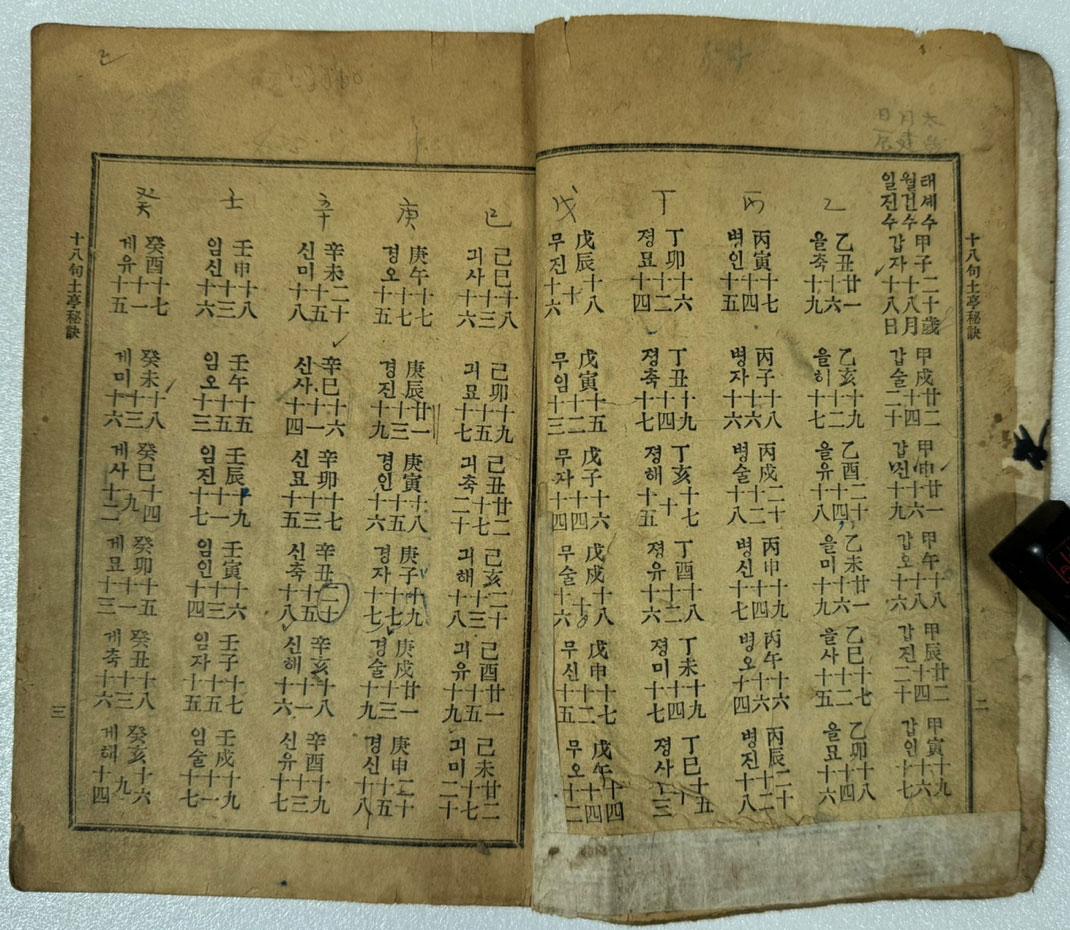 太歲
月建
日辰
十八句土亭秘訣
二
태세수 甲子二十歲 甲戌廿二 甲申廿一 甲午十八 甲辰廿二 甲寅十九
월건수 十八月 十四 十六 十四 十六
일진수 갑자十八日 갑술二十 갑신十九 갑오十六 갑진二十 갑인十七
乙
乙丑廿一 乙亥十九 乙酉二十 乙未廿一 乙巳十七 乙卯十八
十六 十二 十四 十六 十二 十四
을축十九 을히十七 을유十八 을미十九 을사十五 을묘十六
丙
丙寅十七 丙子十八 丙戌二十 丙申十九 丙午十六 丙辰二十
十四 十六 十二 十四 十六 十二
병인十五 병자十六 병술十八 병신十七 병오十四 병진十八
丁
丁卯十六 丁丑十九 丁亥十七 丁酉十八 丁未十九 丁巳十五
十二 十四 十 十二 十四 十
졍묘十四 졍축十七 졍해十五 졍유十六 졍미十七 졍사十三
戊
戊辰十八 戊寅十五 戊子十六 戊戌十八 戊申十七 戊午十四
十 十二 十四 十 十二 十四
무진十六 무임十三 무자十四 무술十六 무신十五 무오十二
己
己巳十八 己卯十九 己丑廿二 己亥二十 己酉廿一 己未廿二
十三 十五 十七 十三 十五 十七
긔사十六 긔묘十七 긔축二十 긔해十八 긔유十九 긔미二十
庚
庚午十七 庚辰廿一 庚寅十八 庚子十九 庚戌廿一 庚申二十
十七 十三 十五 十七 十三 十五
경오十五 경진十九 경인十六 경자十七 경술十九 경신十八
辛
辛未二十 辛巳十六 辛卯十七 辛丑二十 辛亥十八 辛酉十九
十五 十一 十三 十五 十一 十三
신미十八 신사十四 신묘十五 신축十八 신해十六 신유十七
壬
壬申十八 壬午十五 壬辰十九 壬寅十六 壬子十七 壬戌十九
十三 十五 十一 十三 十五 十一
임신十六 임오十三 임진十七 임인十四 임자十五 임술十七
癸
癸酉十七 癸未十八 癸巳十四 癸卯十五 癸丑十八 癸亥十六
十一 十三 九 十一 十三 九
게유十五 게미十六 게사十二 게묘十三 게축十六 게해十四
十八句土亭秘訣
三